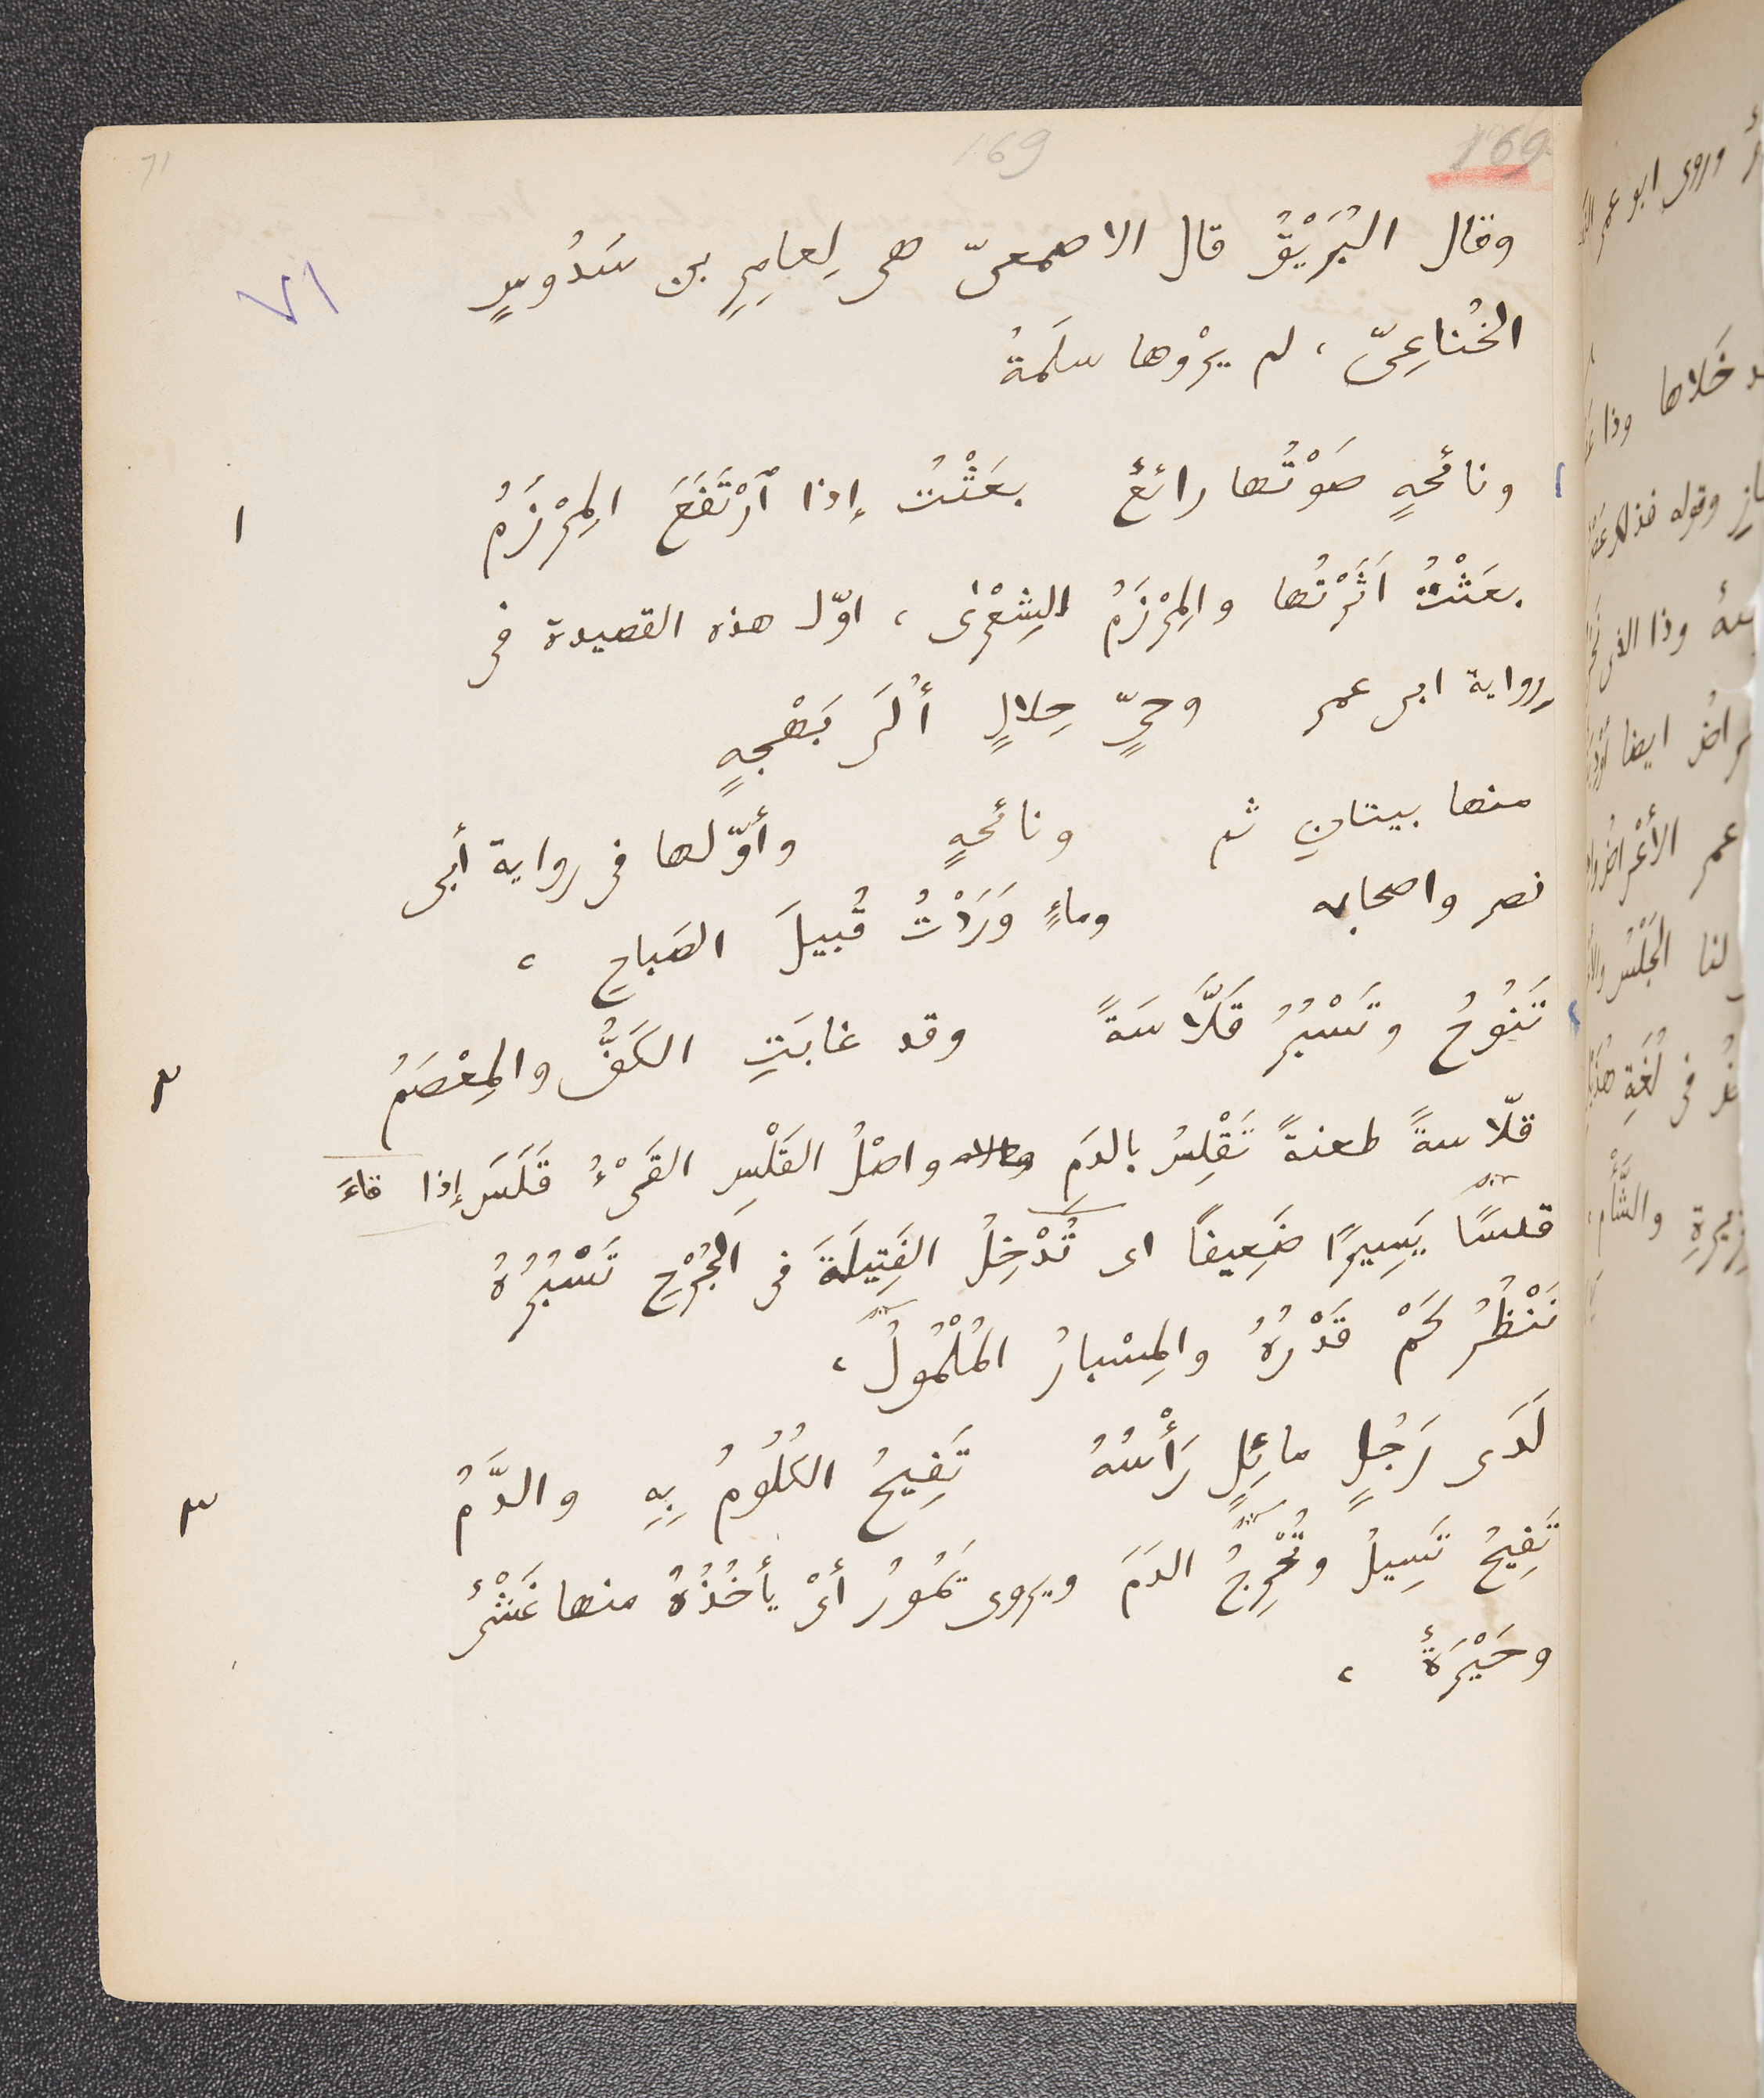 71 169 169
وقال البُرَيْقُ قال الاصمعىّ هى لِعامِرِ بن سَدُوسٍ ٧١
الخُناعِىّ ، لم يرْوها سلَمةُ
ونائحةٍ صَوْتُها رائعٌ بعَثْتُ إذا ٱرْتَفَعَ المِرْزَمُ ١
بعَثْتُ اَثَرْتُها والمِرْزَمُ الشِعْرٰى ، اوّل هذه القصيدة فى
رواية ابى عمر وحىٍّ حِلالٍ أُلَى بَهْجةٍ
منها بيتانِ ثم ونائحةٍ وأوّلها فى رواية أبى
نصر واصحابه وماءٍ وَرَدْتُ قُبيلَ الصَباحِ ،
تَنُوحُ وتَسْبُرُ قَلّاسَةً وقد غابَتِ الكَفُّ والمِعْصَمُ ٢
قلّاسةً طعنةً تَقْلِسُ بالدَمِ واصْلُ القَلْسِ القَىْءُ قَلَسَ إذا قاءَ
قلسًا يَسِيرًا ضَعِيفًا اى تُدْخِلُ الفَتِيلَةَ فى الجُرْحِ تَسْبُرُهُ
تَنْظُرُ كَمْ قَدْرُهُ والمِسْبارُ المُلْمُولُ ،
لَدَى رَجُلٍ مائِلٍ رَأْسُهُ تَفِيحُ الكُلُومُ بِهِ والدَّمُ ٣
تَفِيحُ تَسِيلُ وتُخْرِجُ الدَمَ ويروى يَمُورُ أىْ يأخُذُهُ منها غَشْىٌ
وحَيْرَةٌ ،